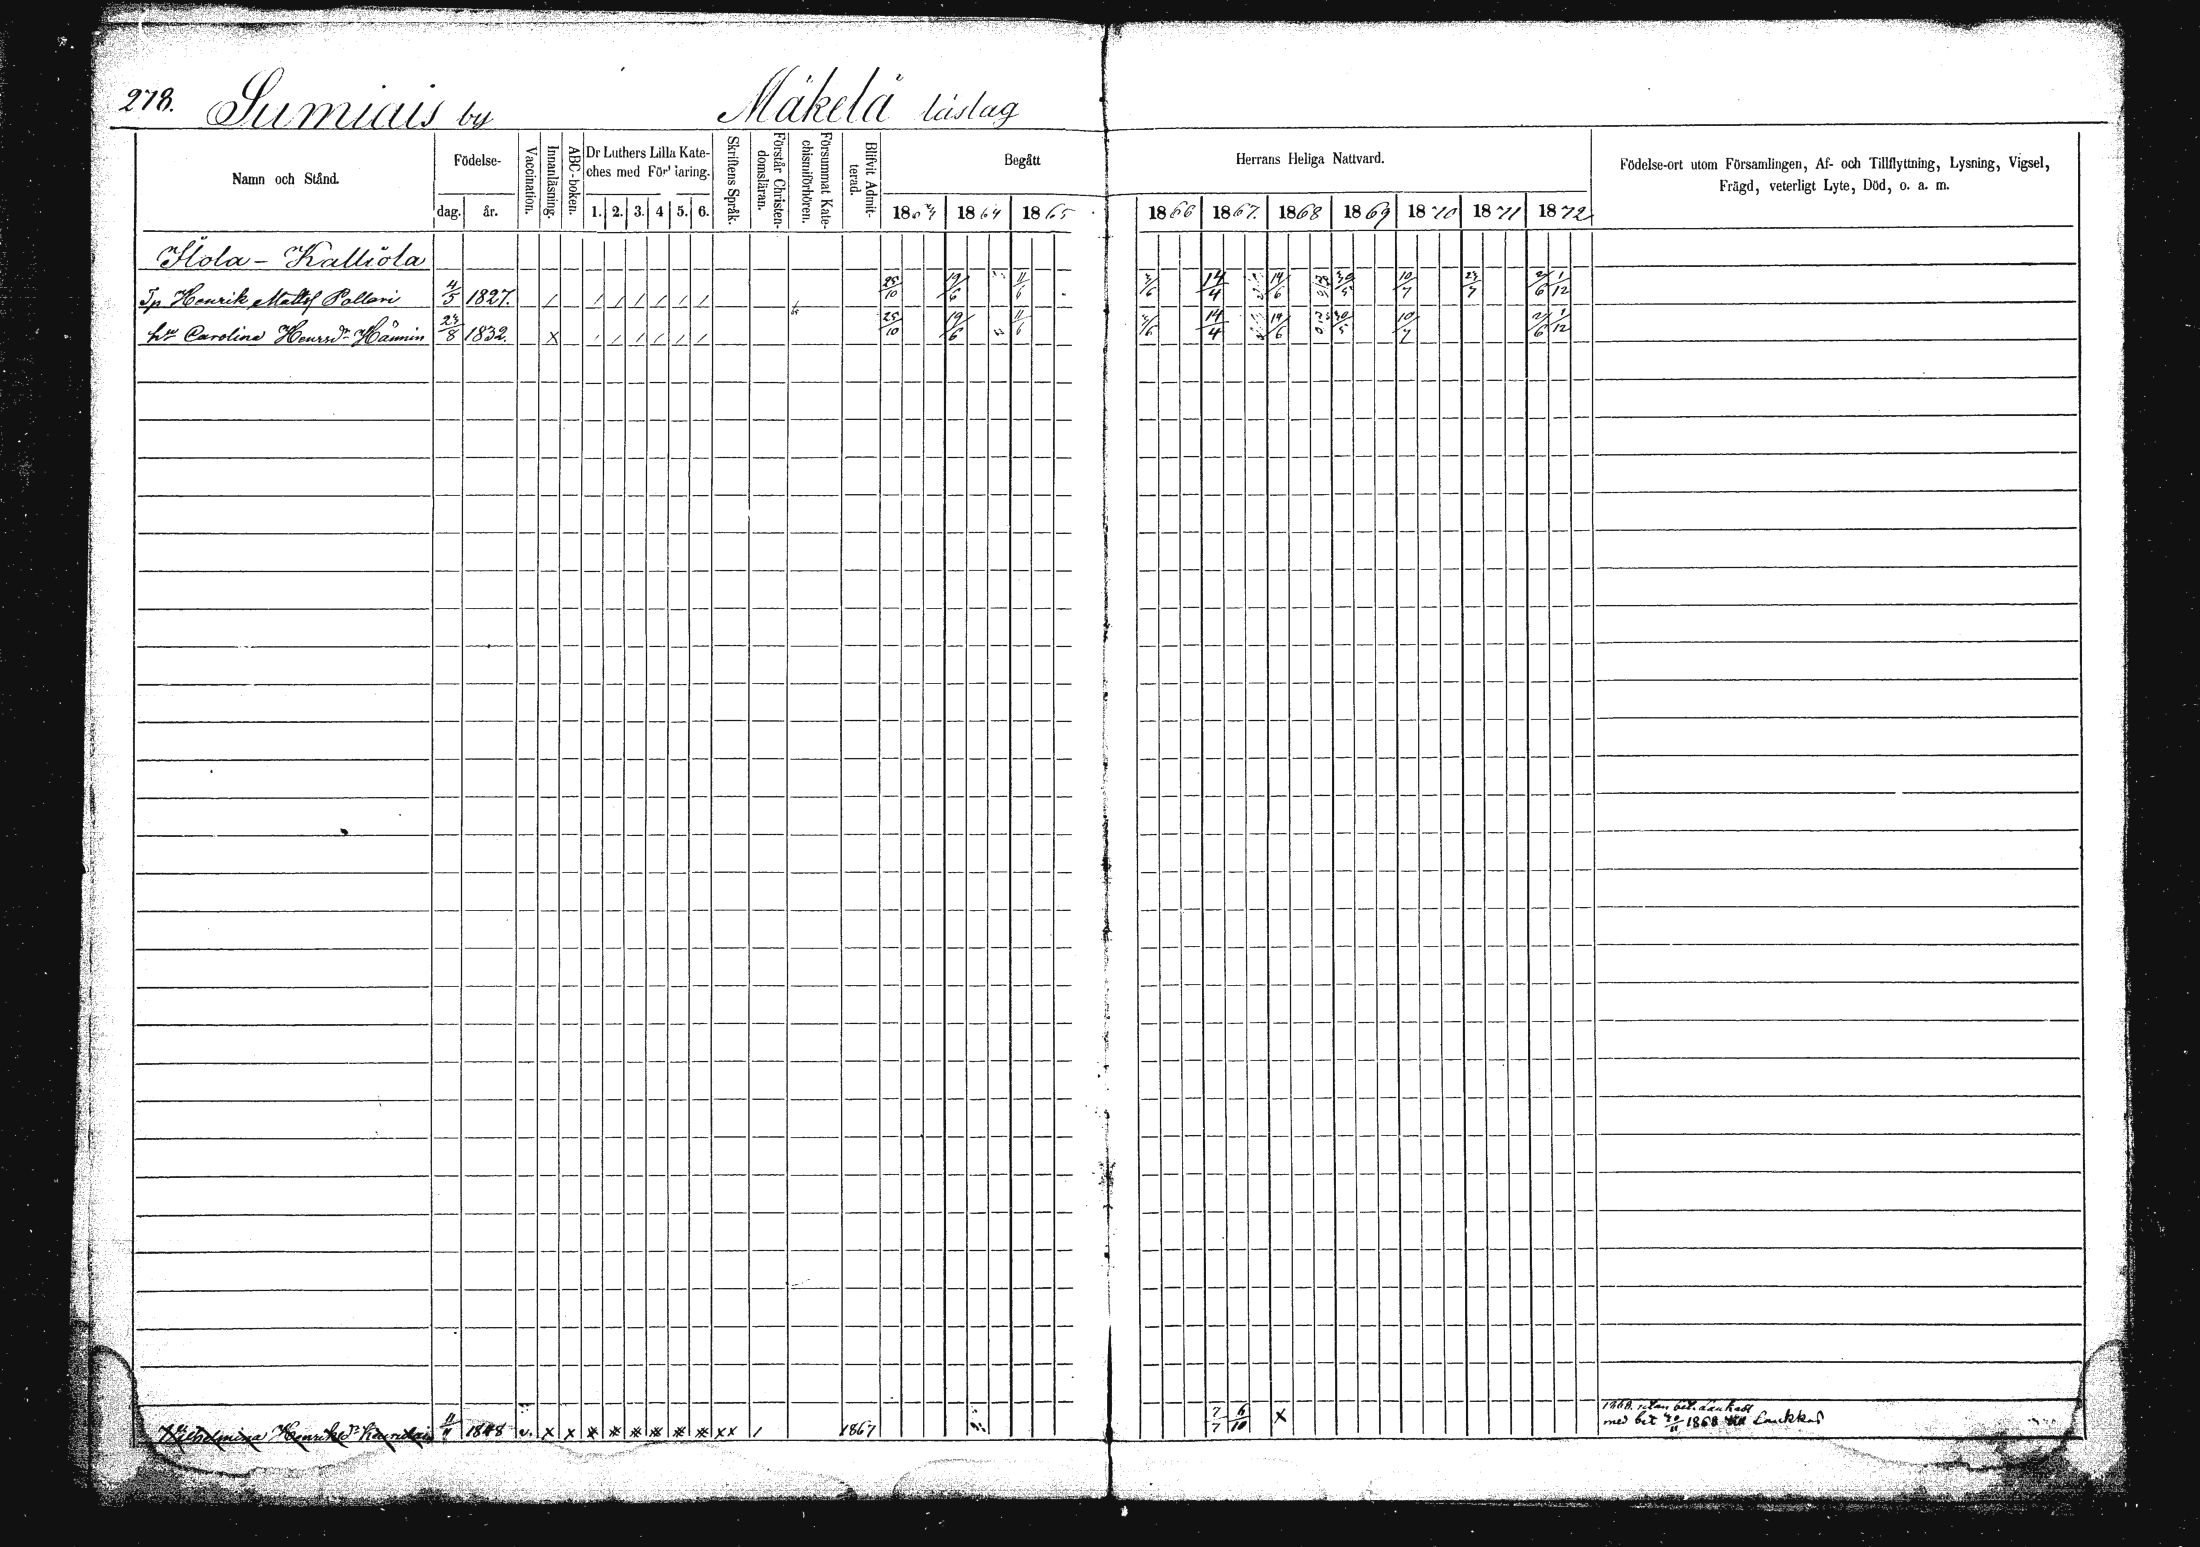 278. Sumiais by Mäkelä läslag
Namn och Stånd. Födelse- Vaccination. Innanläsning. ABC-boken. Dr Luthers Lilla Kate-ches med För iaring. Skriftens Språk. Förstår Christen-domsläran. Försummat Kate-chismiförhören. Blifvit Admit-terad. Begått Herrans Heliga Nattvard. Födelse-ort utom Församlingen, Af- och Tillflyttning, Lysning, Vigsel,
Frägd, veterligt Lyte, Död, o. a. m.
dag. år. 1. 2. 3. 4 5. 6. 1864 1865 1866 1867. 1868 1869 1870 1871 1872
Kalliola
Tp Henrik Matts Pollari 4/5 1827. / / / / / / / 25/10 19/6 11/6 14/4 19/6 30/5 10/7 23/7 2/6 1/12
hu Carolina Henrsdr Hännin 23/8 1832. x / / / / / / 25/10 19/6 11/6 14/4 19/6 30/5 10/7 2/6 1/12
Henriksdr 11/11 1848 v. x x * * * * * * xx / 1867 7/7 6/10 x
med bet 1868 Laukkas